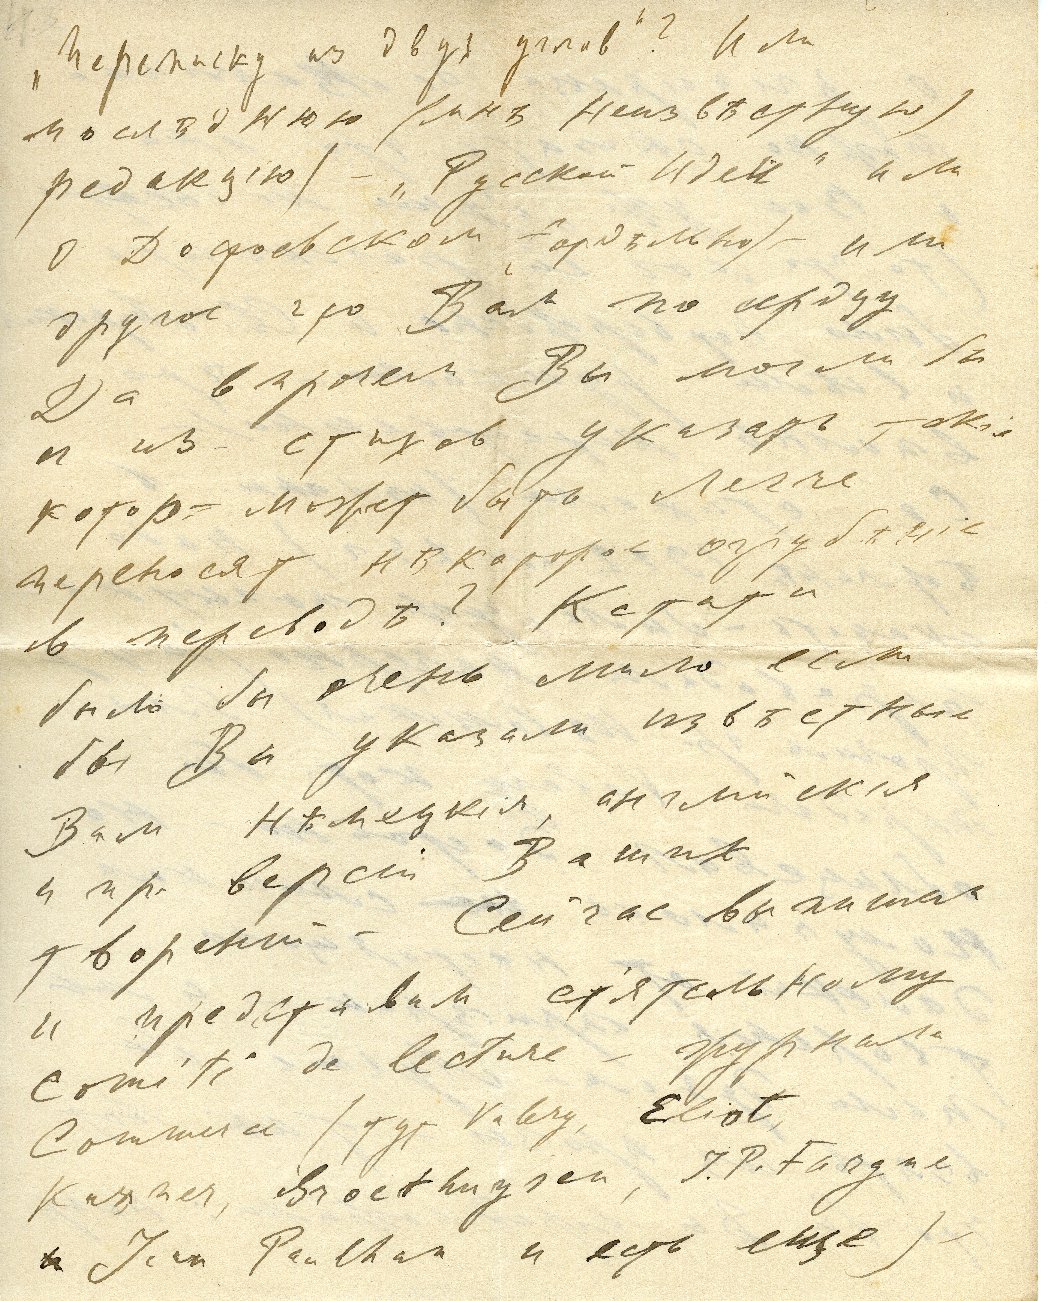 „Переписку из двух углов"? Или
послѣднюю (мнѣ неизвѣстную)
редакцію) – „Русской Идеи" или
о Достоевском – (отдѣльно) – или
другое что Вам по сердцу
Да впрочем Вы могли бы
и из стихов указать такіе
котор– может быть легче
переносят нѣкоторое огрубѣніе
в переводѣ? Кстати
было бы очень мило если
бы Вы указали извѣстныя
Вам нѣмецкія, англійскія
и пр. версіи Ваших
твореній – Сейчас выпишем
и представим сіятельному
comité de lecture – журнала
Commerce (тут Valéry, Eliot,
Kassner, Groethuysen, J.P. Fargue
и Jean Paulhan и есть еще) –